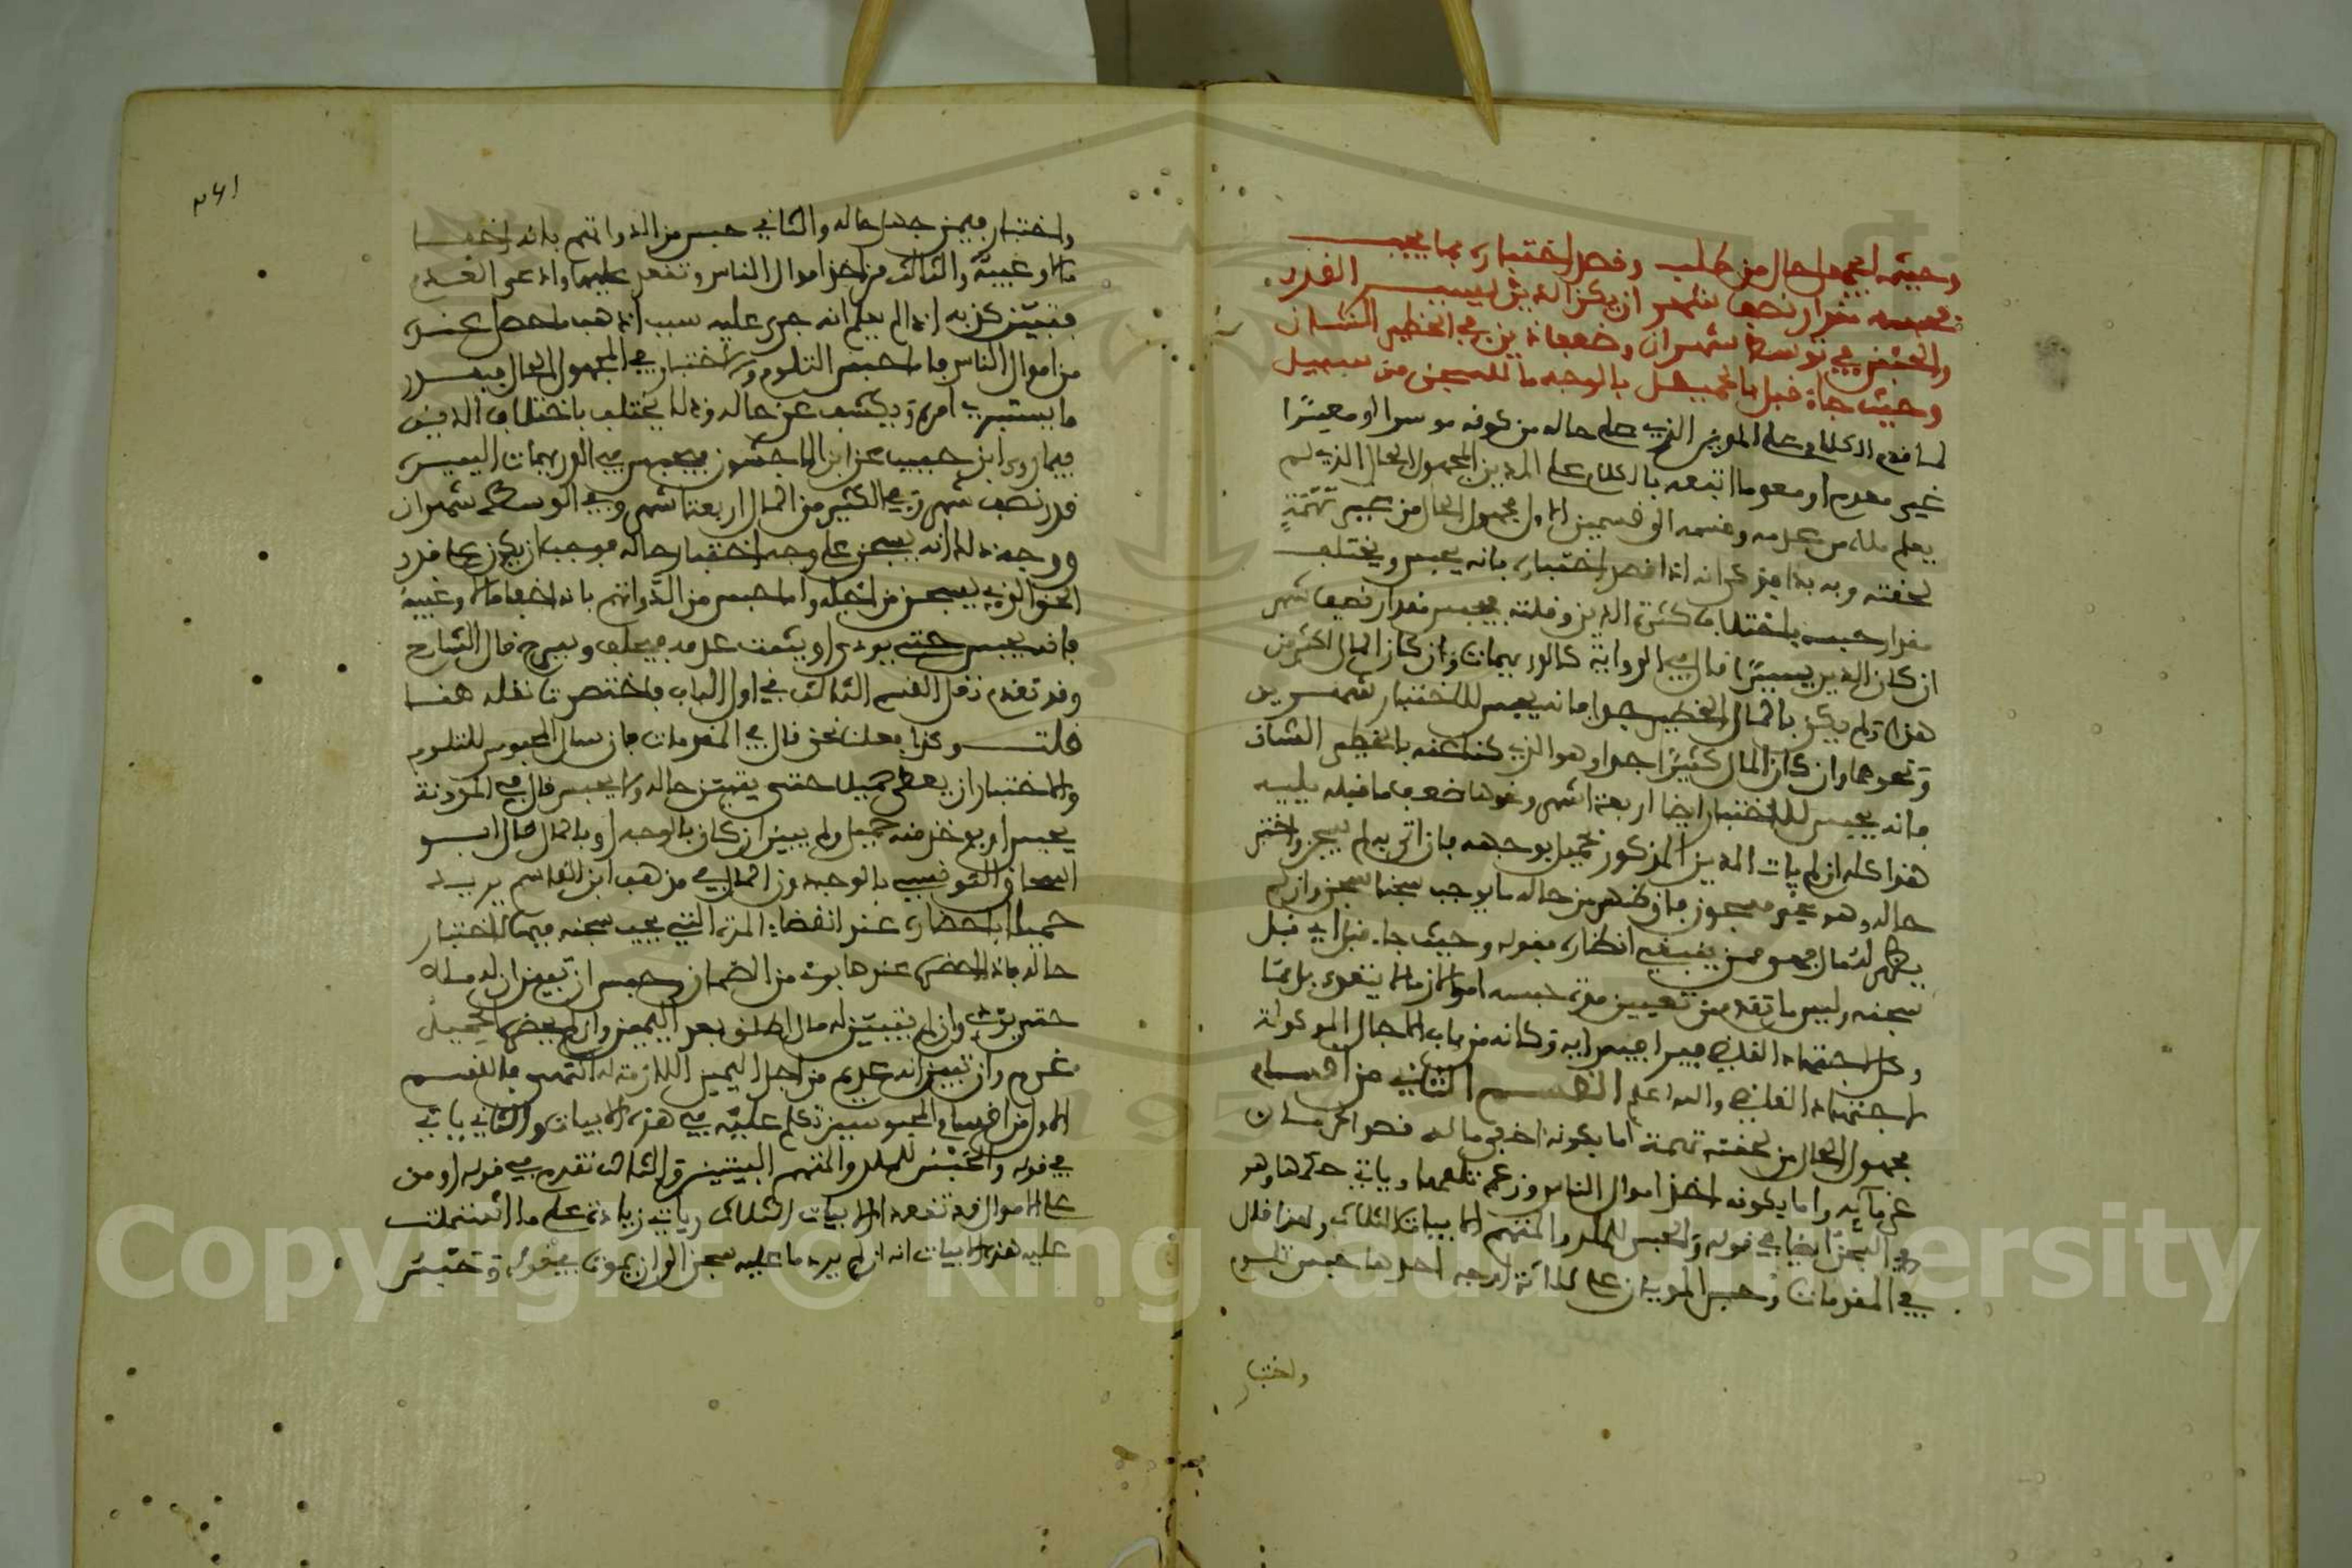 وحيثما يجهل حال من طلب وقصد اختباره بما يجب
فحبسه مقدار نصف شهر ان يكن الدين يسير القدر
والحبس في توسط شهران وضعف ذين في الخطير الشان
وحيث جاء قبل بالحميل بالوجه ما للسجن من سبيل
لما قدم الكلام على المدين الذي علم حاله من كونه موسرا او معسرا
غير معدم او معدوما اتبعه بالكلام على المدين المجهول الحال الذي لم
يعلم ملاه من عدمه وقسمه الى قسمين الاول مجهول الحال من غير تهمة
لحقته وبه بدا فذكر انه اذا قصد اختباره بانه يحبس ويختلف
مقدار حبسه باختلاف كثرة الدين وقلته فيحبس مقدار نصف شهر
ان كان الدين يسيرا قال في الرواية كالدريهمات وان كان المال اكثر من
هذا ولم يكن بالمال الخطير جدا فانه يحبس للاختبار شهرين
ونحوهما وان كان المال كثيرا جدا وهو الذي كنى عنه بالخطير الشان
فانه يحبس للاختبار ايضا اربعة اشهر وهو ضعف ما قبله يليه
هذا كله ان لم يات المدين المذكور بحميل بوجهه فان اتى به لم يسجن واختبر
حاله وهو غير مسجون فان ظهر من حاله ما يوجب سجنا سجن وان لم
يظهر له مال فهو ممن ينبغي انظاره فقوله وحيث جاء قبل اي قبل
سجنه وليس ما تقدم من تعيين مدة حبسه امرا لازما لا يتعدى بل هنا
وكل اجتهاد القاضي فيرا فيه رايه وكانه من باب الاجال الموكولة
لاجتهاد القاضي والله اعلم القسم الثاني من اقسام
مجهول الحال من لحقته تهمة اما بكونه اخفى ماله قصدا لحرمان
غرمائه واما بكونه اخذ اموال الناس وزعم تلفها وياتي حكمها وهو
في السجن ايضا في قوله والحبس للملد والمتهم الابيات الثلاث ولهذا قال
في المقدمات وحبس المديان على ثلاثة اوجه احدها حبس تلوم
واختبار
واختبار فيمن جهل حاله والثاني حبس من الد واتهم بانه اخفى
مالا وغيبه والثالث من اخذ اموال الناس وتقعد عليها وادعى العدم
فتبين كذبه اذا لم يعلم انه جرى عليه سبب اذهب ما حصل عنده
من اموال الناس فاما حبس التلوم والاختبار في المجهول الحال فبقدر
ما يستبرئ امره ويكشف عن حاله وذلك يختلف باختلاف الدين
فيما روى ابن حبيب عن ابن الماجشون فيحبس في الدريهمات اليسيرة
قدر نصف شهر وفي الكثير من المال اربعة اشهر وفي الوسط شهران
ووجه ذلك انه يسجن على وجه اختبار حاله فوجب ان يكون على قدر
الحق الذي يسجن من اجله واما حبس من الد واتهم بانه اخفا مالا وغيبه
فانه يحبس حتى يودي او يثبت عدمه فيحلف ويسرح قال الشارح
وقد تقدم نقل القسم الثالث في اول الباب فاختصرنا نقله هنا
قلت وكذا فعلنا نحن قال في المقدمات فان سال المحبوس للتلوم
والاختبار ان يعطي حميلا حتى يتبين حاله ولا يحبس قال في المدونة
يحبس او يوخذ منه حميل ولم يبين ان كان بالوجه او بالمال قال ابو
اسحاق التونسي بالوجه دون المال في مذهب ابن القاسم يريد
حميلا باحضاره عند انقضاء المدة التي يجب سجنه فيها لاختبار
حاله فاذا احضره عندها برئ من الضمان وحبس ان تبين ان له مالا
حتى يودي وان لم يتبين له مال اطلق بعد اليمين وان لم يحضره الحميل
غرم وان تبين انه عديم من اجل اليمين اللازمة له انتهى فالقسم
الاول من اقسام المحبوسين تكلم عليه في هذه الابيات والثاني ياتي
في قوله والحبس للملد والمتهم البيتين والثالث تقدم في قوله او من
على الاموال قد تقعدا الابيات الثلاثة وياتي زيادة على ما اشتملت
عليه هذه الابيات انه ان لم يرد ما عليه سجن الى ان يموت في قوله وحبس